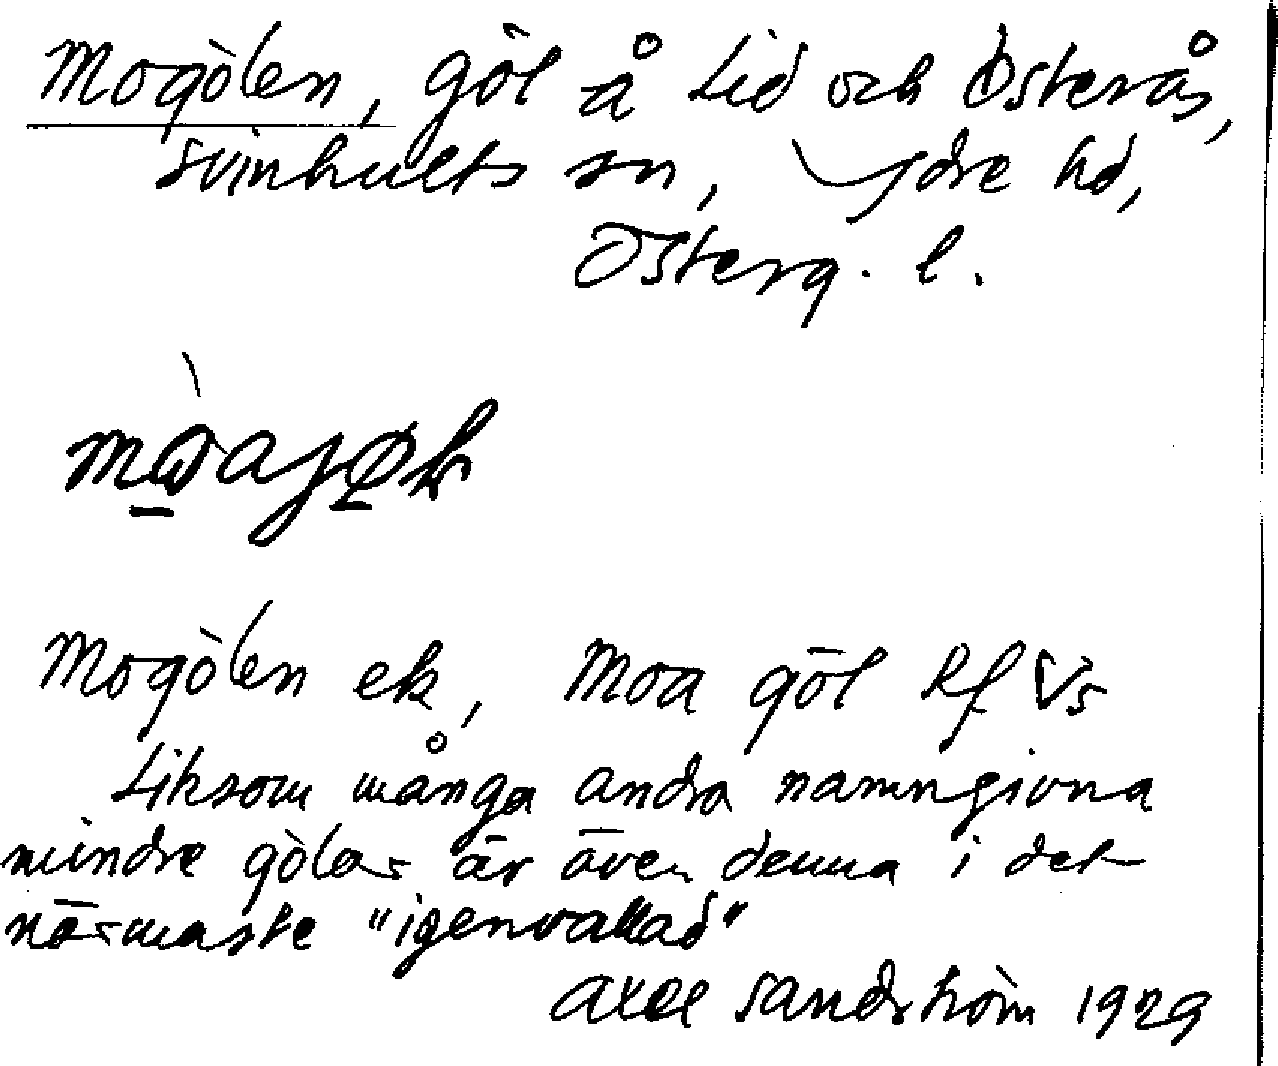 Mogölen, göl å Lid och Österås,
Svinhults sn, Ydre hd,
Österg. l.
Mogölen ek, Moa göl Rf Vs
Liksom många andra namngivna
mindre gölar är även denna i det
närmaste "igenvallad"
Axel Sandström 1929